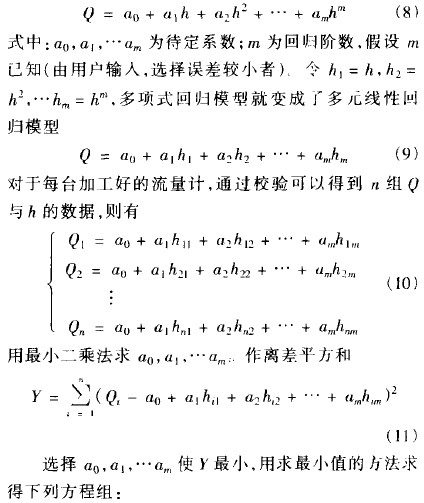 Q = a₀ + a₁h + a₂h² + ··· + aₘhᵐ (8)
式中:a₀,a₁,···aₘ 为待定系数;m 为回归阶数,假设 m
已知(由用户输入,选择误差较小者)。令 h₁ = h,h₂ =
h²,···hₘ = hᵐ,多项式回归模型就变成了多元线性回
归模型
Q = a₀ + a₁h₁ + a₂h₂ + ··· + aₘhₘ (9)
对于每台加工好的流量计,通过校验可以得到 n 组 Q
与 h 的数据,则有
Q₁ = a₀ + a₁h₁₁ + a₂h₁₂ + ··· + aₘh₁ₘ
Q₂ = a₀ + a₁h₂₁ + a₂h₂₂ + ··· + aₘh₂ₘ (10)
⋮
Qₙ = a₀ + a₁hₙ₁ + a₂hₙ₂ + ··· + aₘhₙₘ
用最小二乘法求 a₀,a₁,···aₘ。作离差平方和
Y = ∑ⁿᵢ₌₁(Qᵢ - a₀ + a₁hᵢ₁ + a₂hᵢ₂ + ··· + aₘhᵢₘ)²
(11)
选择 a₀,a₁,···aₘ 使 Y 最小,用求最小值的方法求
得下列方程组: